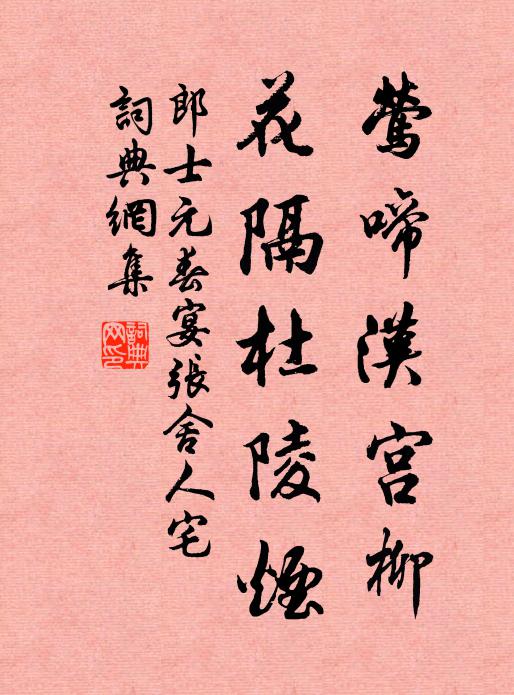 鶯啼漢宮柳
花隔杜陵煙
郎士元春宴張舍人宅
詞典網集
詞典網印